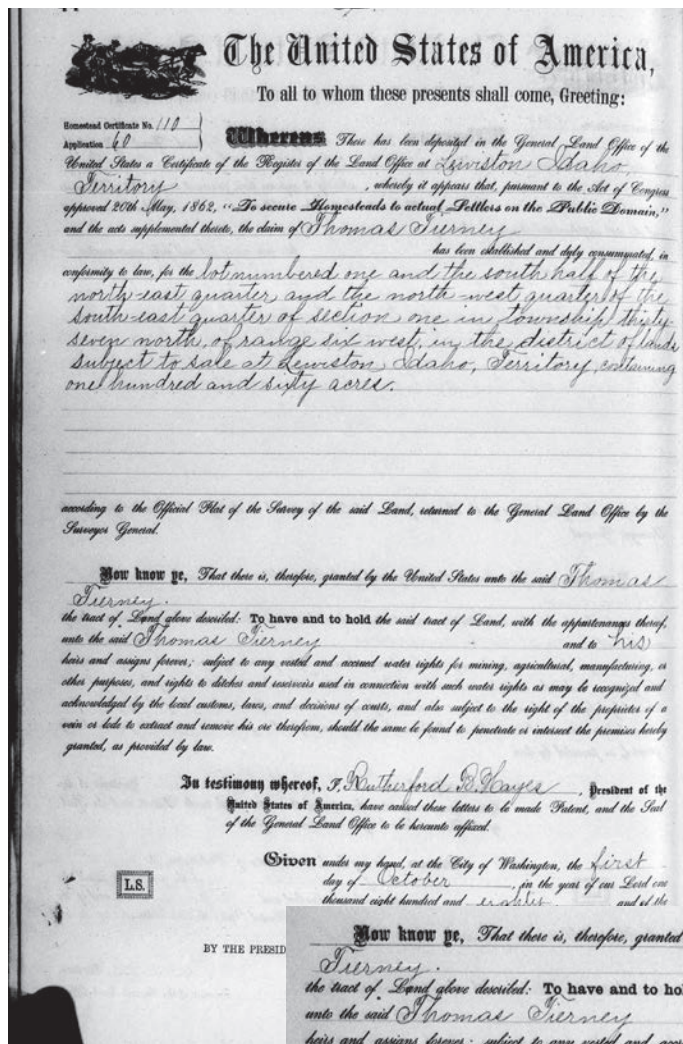 The United States of America,
To all to whom these presents shall come, Greeting:
Homestead Certificate No. 110
Application 60
Whereas There has been deposited in the General Land Office of the
United States a Certificate of the Register of the Land Office at Lewiston Idaho,
Territory , whereby it appears that, pursuant to the Act of Congress
approved 20th May, 1862, "To secure Homesteads to actual Settlers on the Public Domain,"
and the acts supplemental thereto, the claim of Thomas Tierney
has been established and duly consummated, in
conformity to law, for the lot numbered one and the south half of the
north-east quarter and the north-west quarter of the
south-east quarter of section one in township thirty-
seven north, of range six west, in the district of lands
subject to sale at Lewiston Idaho, Territory, containing
one hundred and sixty acres.
according to the Official Plat of the Survey of the said Land, returned to the General Land Office by the
Surveyor General.
Now know ye, That there is, therefore, granted by the United States unto the said Thomas
Tierney.
the tract of Land above described: To have and to hold the said tract of Land, with the appurtenances thereof,
unto the said Thomas Tierney and to his
heirs and assigns forever; subject to any vested and accrued water rights for mining, agricultural, manufacturing, or
other purposes, and rights to ditches and reservoirs used in connection with such water rights as may be recognized and
acknowledged by the local customs, laws, and decisions of courts, and also subject to the right of the proprietor of a
vein or lode to extract and remove his ore therefrom, should the same be found to penetrate or intersect the premises hereby
granted, as provided by law.
In testimony whereof, I, Rutherford B. Hayes , President of the
United States of America, have caused these letters to be made Patent, and the Seal
of the General Land Office to be hereunto affixed.
Given under my hand, at the City of Washington, the first
day of October , in the year of our Lord one
thousand eight hundred and eighty and of the
L.S.
BY THE PRESID
Now know ye, That there is, therefore, granted
Tierney.
the tract of Land above described: To have and to hol
unto the said Thomas Tierney
heirs and assigns forever; subject to any vested and accr